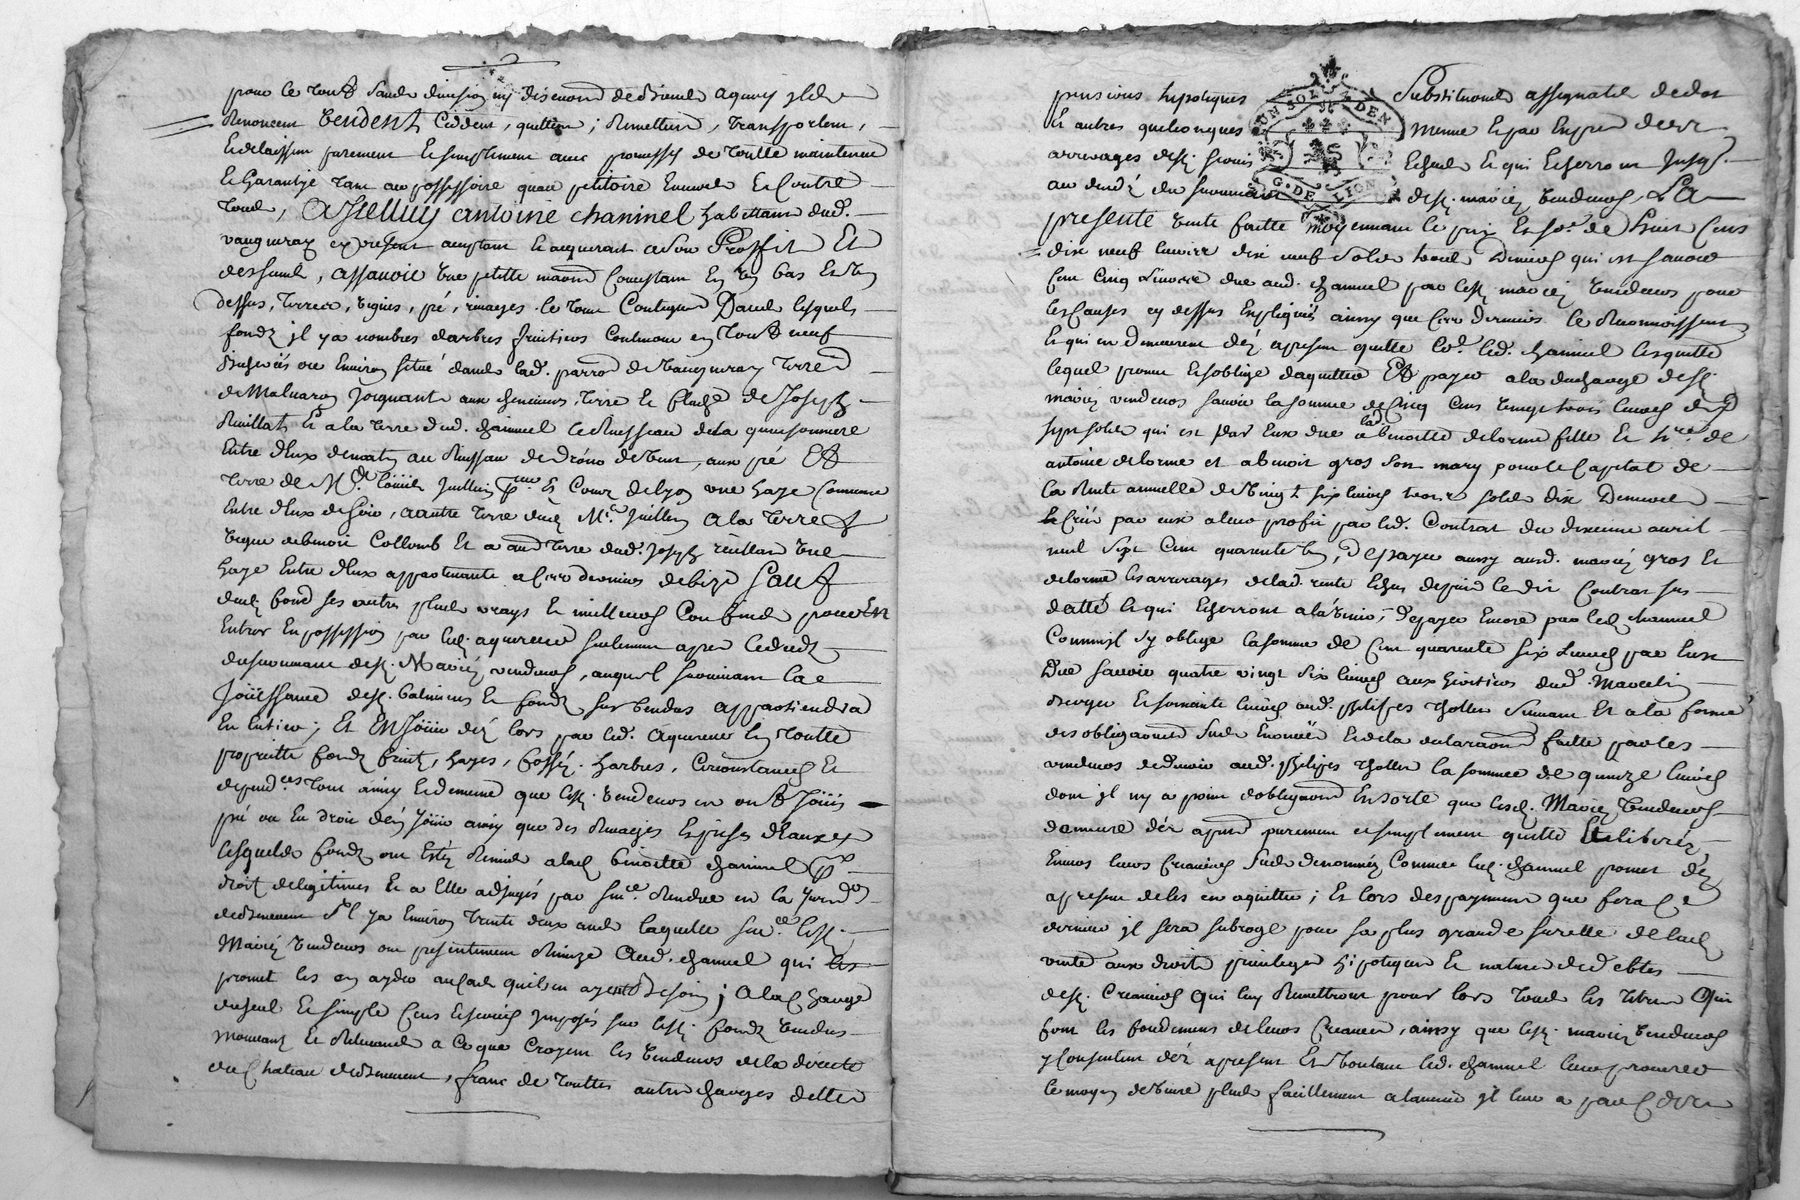 pour le tout sans division ny discution de biens a quoy ils
Renoncent Vendent, Ceddent, quittent, Remettent, transportent,
Et delaissent purement Et simplement avec promesses de toutte maintenue
Et Garantye tant au possessoire quau petitoire Envers Et Contre
tous, A Sr antoine channel habittant dud.
vaugneray cy present acceptant Et acquerant a Son Proffit Et
des siens, assavoir Une petitte maison Consistant En Un bas Et Un
dessus, terres, vignes, pré, rivages le tout Contigus Dans lesquels
fonds il ya nombres darbres fruitiers Contenant En Tout neuf
ou Environ situé dans lad. parroisse de Vaugneray Terre
de Malvaroy Joignant aux chemins, terre Et de Joseph
Reuillat Et a la terre dud. channel le Ruisseau de la
Entre deux de matin, au Ruisseau de de Vent, aux pré Et
Terre de Mr. Loüis Juillien pr Es Cours de Lyon une haye Commune
Entre deux de soir, a autre terre dud. Mr. Juillien a la terre Et
Vigne de benoit Collomb Et a aud. terre dud. Joseph reuillat Une
haye Entre deux appartenante a Ces derniers de bize Sauf
dud. fond ses autres plus vrays Et meilleurs Confins pour En
Entrer En possession par led. aquereur seulement apres le deceds
du survivant desd. Mariés vendeurs, auquel survivant la
Joüissance desd. batimens Et fonds sus vendus appartiendra
En Entier; Et En Joüir dez lors par led. aquereur En toutte
proprietté fonds fruits, hayes, fossés, harbres, Circonstances Et
depend.ces tout ainsy Et de meme que lesd. Vendeurs en ont Joüis
pû ou Eu droit dén Joüir ainsy que des Rivages Es prises dEaux
lesquels fonds ont Estéz Remis a lad. benoitte channel pr
droit de legitimes Et a Elle adjugés par Sen.ce Rendue en la Jurisd.on
il ya Environ trente deux ans laquelle sen.ce lesd.
Mariés Vendeurs ont presentement Remize Aud. channel qui
promet les en ayder au cas quils en ayent besoin; A la Charge
du seul Et simple Cens Et servis Imposés sur lesd. fonds Vendus
mouvants Et Relevants a Ce que Croyent les Vendeurs de la directe
du Chateau, franc de touttes autres charges dettes
pensions hypotiques Substitutions assignation de dot
Et autres quelconques meme Et par Exprés des
arrerages desd. servis Echus Et qui Echerront Jusq.
au deceds du survivant desd. mariés Vendeurs, La
presente Vente faitte moyennant le prix Et so.e de Six Cens
dix neuf livres dix neuf Sols trois Deniers qui est savoir
Cent Cinq Livres due aud. channel par lesd. mariés Vendeurs pour
les Causes cy dessus Expliquées ainsy que Ces derniers le Reconnoissent
Et qui en demeurent déz apresent quitte Et led. channel lesquitte
lequel promet Et soblige daquitter Et payer a la decharge desd.
mariés vendeurs savoir la somme de Cinq Cens Vingt trois livres
sept sols qui est par Eux due a lad. benoitte delorme fille Et h.re de
antoine delorme et a benoit gros son mary pour le Capital de
la Rente annuelle de Vingt six livres trois sols dix Deniers
Créé par eux a leur profit par led. Contrat du dixieme avril
mil sept Cent quarente Un, de payer aussy aud. mariés gros Et
delorme les arrerages de lad. rente Echus depuis le dit Contrat sus
datté Et qui Echerront a lavenir, de payer Encore par led. channel
Comme il sy oblige la somme de Cent quarente Six Livres par Eux
Due savoir quatre vingt six livres aux heritiers dud. Marcelin
berger Et soixante livres aud. Philipes tholler suivant Et a la forme
des obligations sus Enoncées Et de la declaration faitte par les
vendeurs de devoir aud. Philipes tholler la somme de quinze livres
dont il ny a point dobligation En sorte que lesd. Mariés Vendeurs
demeure déz apresent purement et simplement quitte Et libérés
Envers leurs Creanciers sus denommés Comme led. channel promet déz
apresent de les en aquitter; Et lors des payemens que fera Ce
dernier il sera subrogé pour sa plus grande surette de lad.
vente aux droits privileges hipotiques Et nature des debtes
desd. Creanciers qui luy Remettront pour lors tous les titres qui
font les fondemens de leurs Creances, ainsy que lesd. mariés Vendeurs
y Consentent déz apresent Et Voulant led. channel leur procurer
le moyen de Vivre plus facillement a lavenir il leur a par Ces